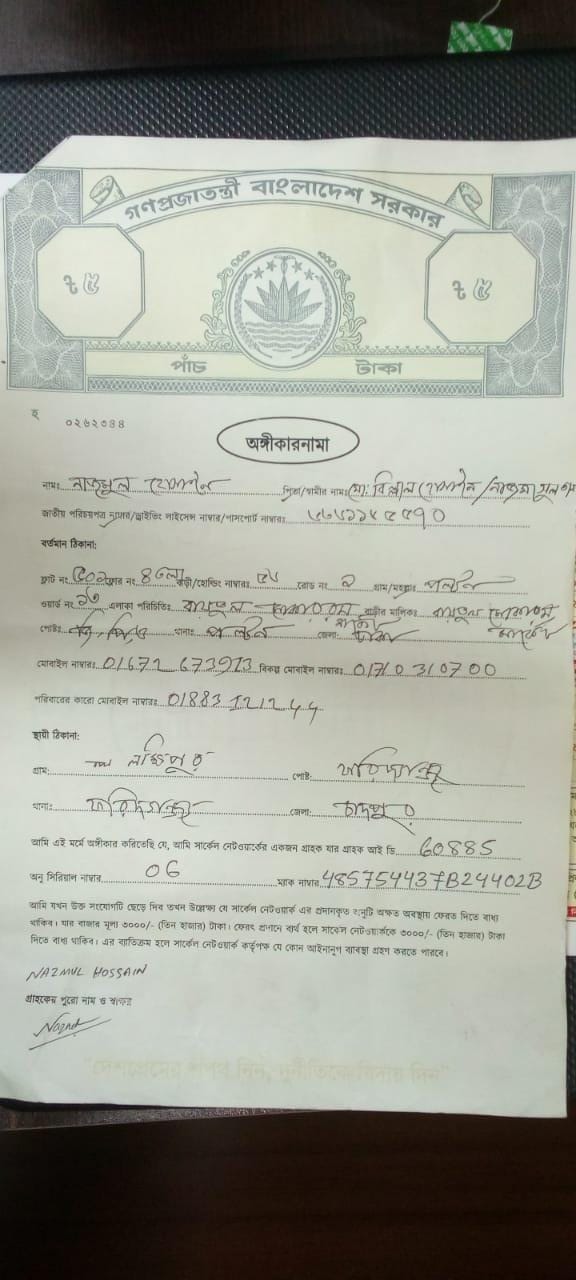 গণপ্রজাতন্ত্রী বাংলাদেশ সরকার
৳ ৫ ৳ ৫
পাঁচ টাকা
০২৬২০৪৪
অঙ্গীকারনামা
নামঃ নাজমুল হোসেন পিতা/স্বামীর নামঃ মো: বিল্লাল হোসেন
জাতীয় পরিচয়পত্র নাম্বার/ড্রাইভিং লাইসেন্স নাম্বার/পাসপোর্ট নাম্বারঃ
বর্তমান ঠিকানা:
ফ্লাট নং ৫০২ ফ্লোর নং ৪ তলা বাড়ী/হোল্ডিং নাম্বারঃ রোড নং ২ গ্রাম/মহল্লাঃ পল্টন
ওয়ার্ড নং এলাকা পরিচিতিঃ বায়তুল মোকাররম মার্কেট বাড়ীর মালিকঃ বায়তুল মোকাররম মার্কেট
পোষ্টঃ জি, পিও থানাঃ পল্টন জেলাঃ ঢাকা
মোবাইল নাম্বারঃ 01672 673913 বিকল্প মোবাইল নাম্বারঃ 01710 310700
পরিবারের কারো মোবাইল নাম্বারঃ 01883 121244
স্থায়ী ঠিকানা:
গ্রাম: লক্ষিপুর পোষ্ট: ফরিদগঞ্জ
থানাঃ ফরিদগঞ্জ জেলা: চাদপুর
আমি এই মর্মে অঙ্গীকার করিতেছি যে, আমি সার্কেল নেটওয়ার্কের একজন গ্রাহক যার গ্রাহক আই ডি 60885
অনু সিরিয়াল নাম্বার 06 ম্যাক নাম্বার 485754437B24402B
আমি যখন উক্ত সংযোগটি ছেড়ে দিব তখন উল্লেখ্য যে সার্কেল নেটওয়ার্ক এর প্রদানকৃত অনুটি অক্ষত অবস্থায় ফেরত দিতে বাধ্য
থাকিব। যার বাজার মূল্য ৩০০০/- (তিন হাজার) টাকা। ফেরৎ প্রদানে ব্যর্থ হলে সার্কেল নেটওয়ার্ককে ৩০০০/- (তিন হাজার) টাকা
দিতে বাধ্য থাকিব। এর ব্যতিক্রম হলে সার্কেল নেটওয়ার্ক কর্তৃপক্ষ যে কোন আইনানুগ ব্যবস্থা গ্রহণ করতে পারবে।
NAZMUL HOSSAIN
গ্রাহকের পুরো নাম ও স্বাক্ষর
"দেশপ্রেমের শপথ নিন, দুর্নীতিকে বিদায় দিন"